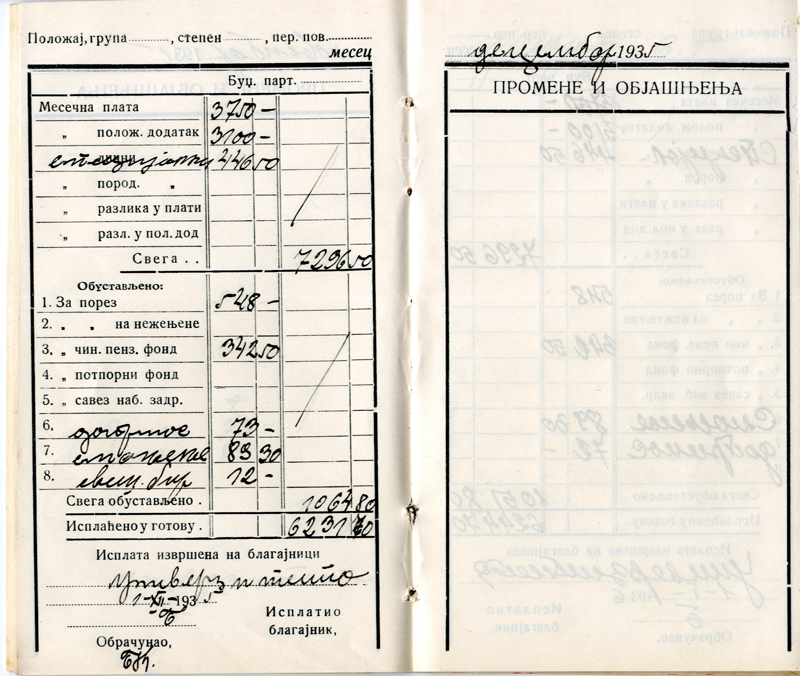 Положај, група , степен , пер. пов.
месец
Буџ. парт.
Месечна плата 3750 —
„ полож. додатак 3100 —
446 50
„ пород. „
„ разлика у плати
„ разл. у пол. дод
Свега . . 7296 50
Обустављено:
1. За порез 548 —
2. „ „ на нежењене
3. „ чин. пенз. фонд 342 50
4. „ потпорни фонд
5. „ савез наб. задр.
6. 73 —
7. 89 30
8. 12 —
Свега обустављено . 1064 80
Исплаћено у готову . 6231 70
Исплата извршена на благајници
1-XII-1935
Исплатио
благајник,
Обрачунао,
децембар 1935
ПРОМЕНЕ И ОБЈАШЊЕЊА